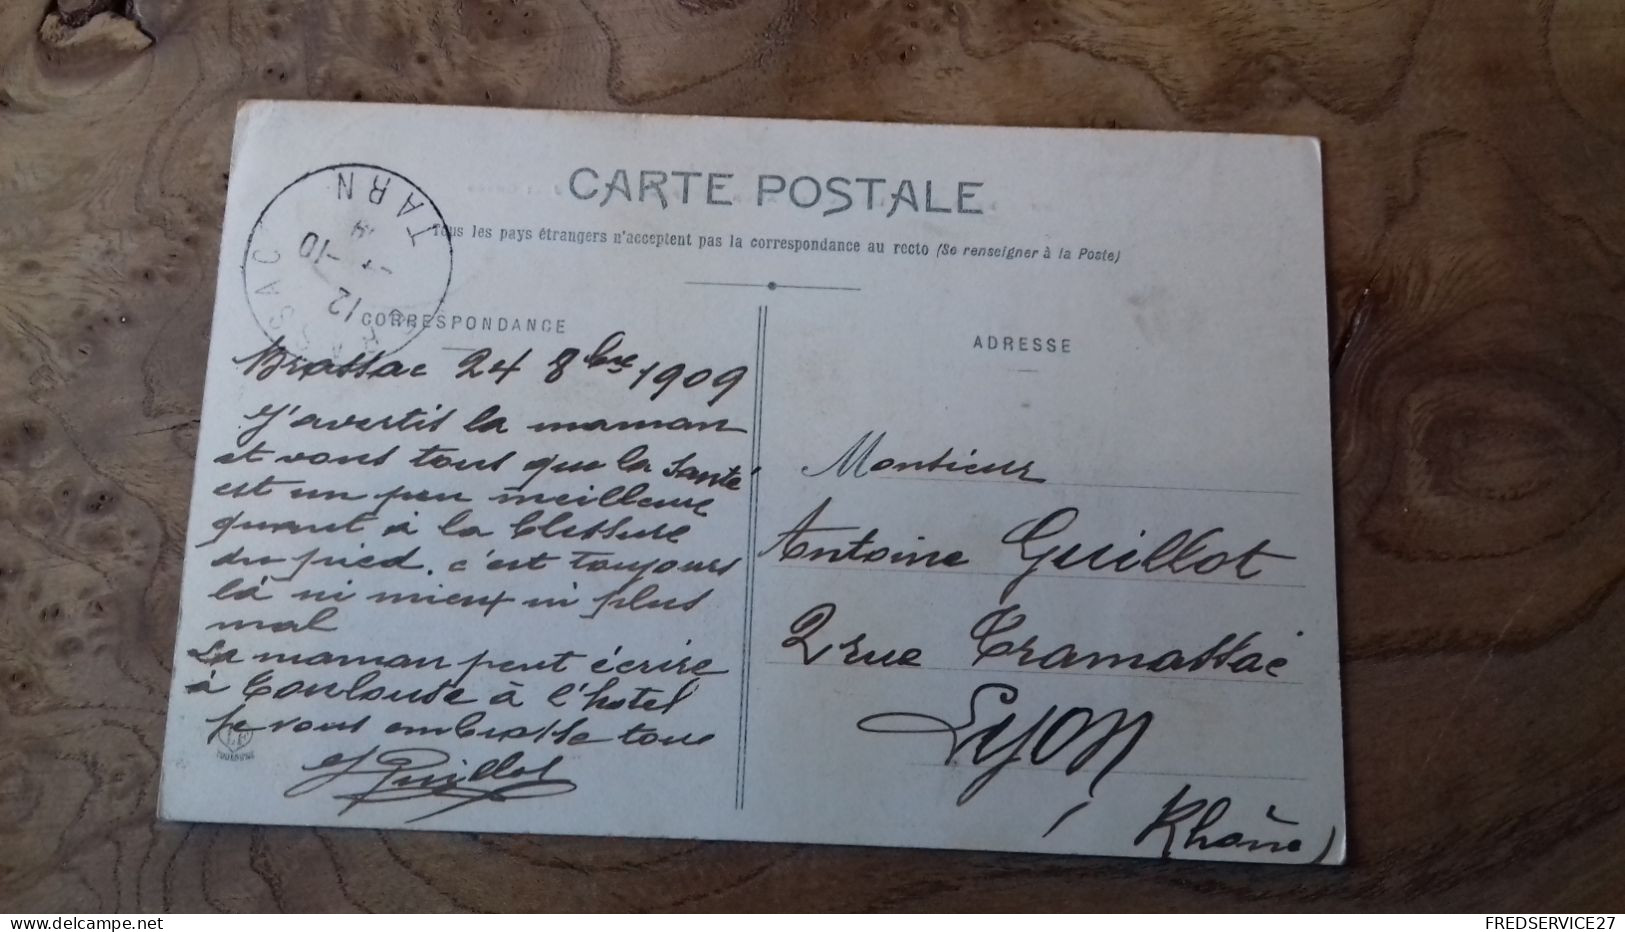 CARTE POSTALE
Tous les pays étrangers n'acceptent pas la correspondance au recto (Se renseigner à la Poste)
BRASSAC
TARN
12
-10
CORRESPONDANCE
Brassac 24 8bre 1909
J'avertis la maman
et vous tous que la santé
est un peu meilleure
quant à la blessure
du pied. c'est toujours
là ni mieux ni plus
mal
La maman peut écrire
à Toulouse à l'hotel
Je vous embrasse tous
J Guillot
ADRESSE
Monsieur
Antoine Guillot
2 rue Tramassac
Lyon
(Rhône)
FREDSERVICE27